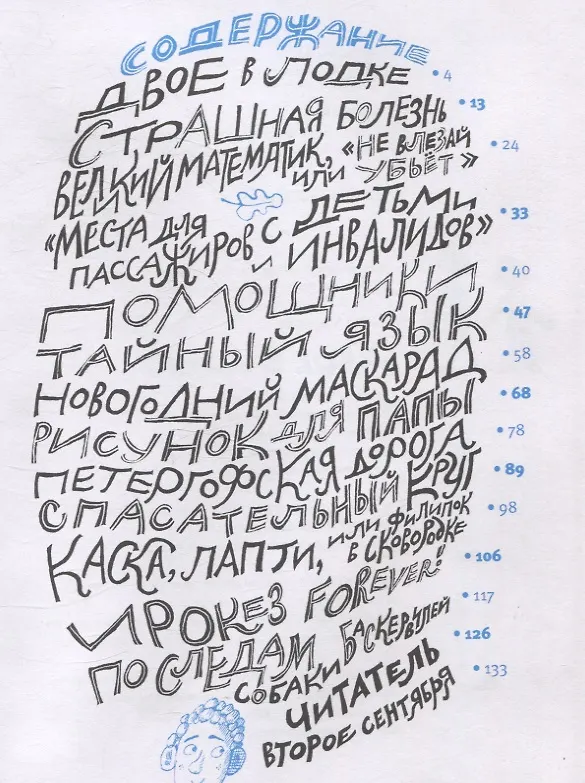 СОДЕРЖАНИЕ
ДВОЕ В ЛОДКЕ • 4
СТРАШНАЯ БОЛЕЗНЬ • 13
ВЕЛИКИЙ МАТЕМАТИК, «НЕ ВЛЕЗАЙ • 24
ИЛИ УБЬЁТ»
«МЕСТА ДЛЯ С ДЕТЬМИ • 33
ПАССАЖИРОВ И ИНВАЛИДОВ»
ПОМОЩНИКИ • 40
ТАЙНЫЙ ЯЗЫК • 47
НОВОГОДНИЙ МАСКАРАД • 58
РИСУНОК ДЛЯ ПАПЫ • 68
ПЕТЕРГОФСКАЯ ДОРОГА • 78
СПАСАТЕЛЬНЫЙ КРУГ • 89
КАСКА, ЛАПТИ, ИЛИ ФИЛИПОК • 98
В СКОВОРОДКЕ
ИРОКЕЗ FOREVER! • 106
ПО СЛЕДАМ БАСКЕРВИЛЕЙ • 117
СОБАКИ
ЧИТАТЕЛЬ • 126
ВТОРОЕ СЕНТЯБРЯ • 133